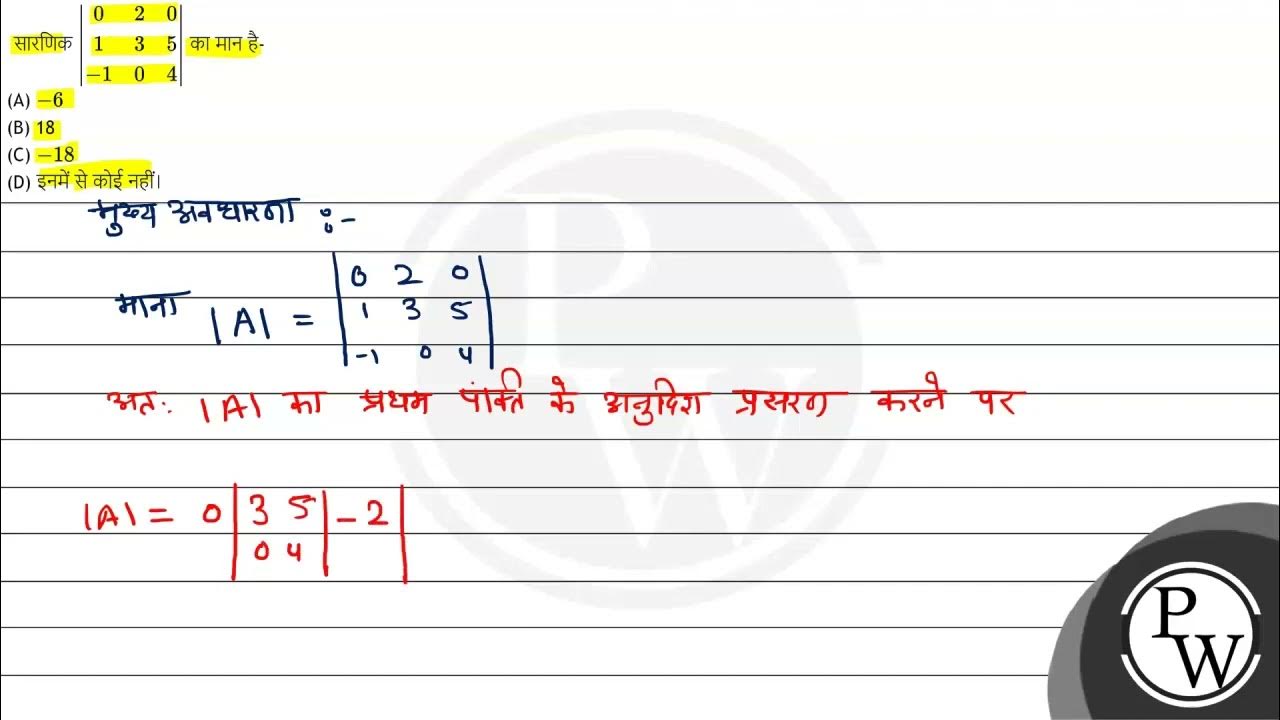 सारणिक | 0 2 0 |
| 1 3 5 | का मान है-
| −1 0 4 |
(A) −6
(B) 18
(C) −18
(D) इनमें से कोई नहीं।
मुख्य अवधारणा :-
माना |A| = | 0 2 0 |
| 1 3 5 |
| -1 0 4 |
अतः |A| का प्रथम पंक्ति के अनुदिश प्रसरण करने पर
|A| = 0 | 3 5 | - 2 |
| 0 4 |
P
W
P
W